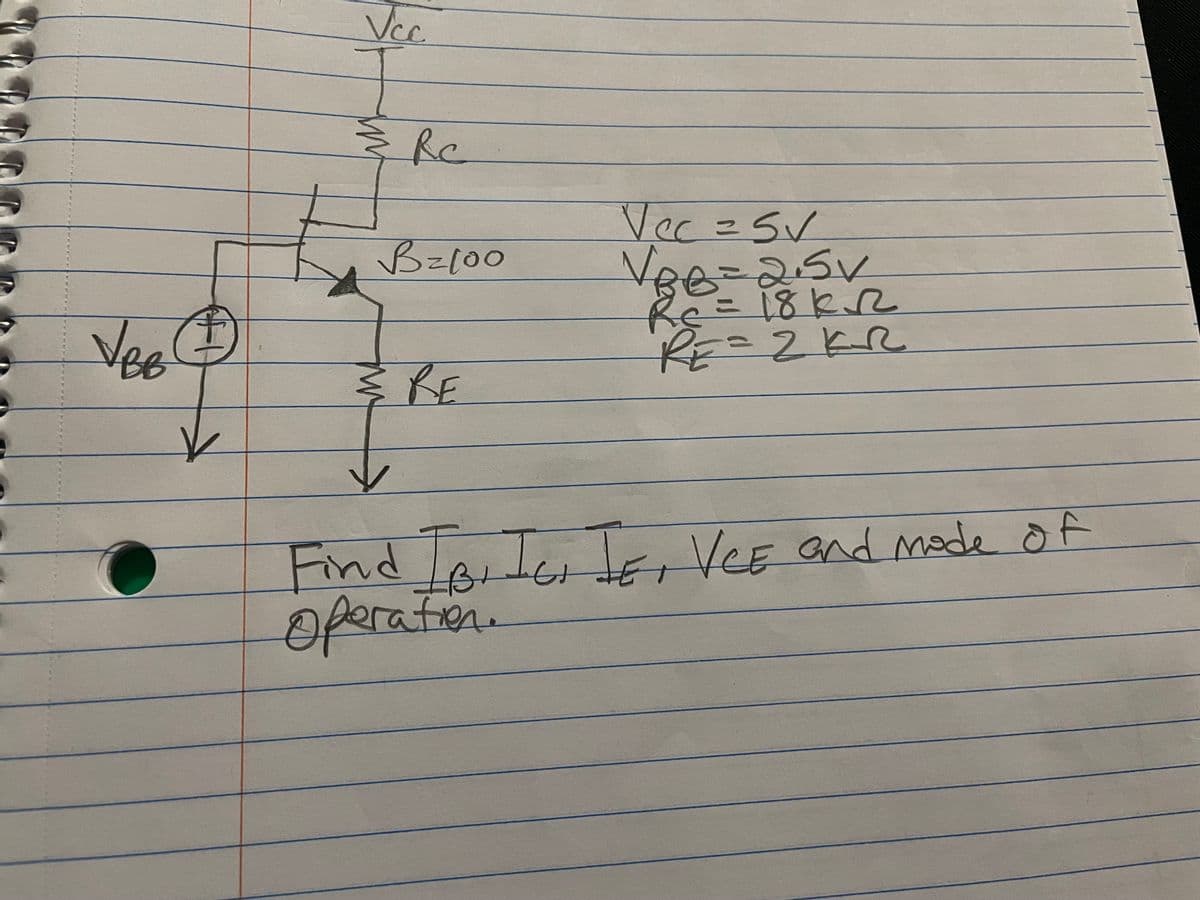 Vcc
Rc
β=100
VBB
+
-
RE
Vcc = 5V
VBB = 2.5V
Rc = 18 kΩ
RE = 2 kΩ
Find IB, IC, IE, VCE and mode of
operation.